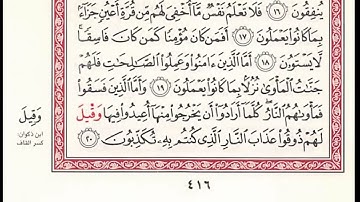 يُنفِقُونَ ١٦ فَلَا تَعْلَمُ نَفْسٌ مَّآ أُخْفِىَ لَهُم مِّن قُرَّةِ أَعْيُنٍ جَزَآءًۢ
بِمَا كَانُوا۟ يَعْمَلُونَ ١٧ أَفَمَن كَانَ مُؤْمِنًا كَمَن كَانَ فَاسِقًا ۚ
لَّا يَسْتَوُۥنَ ١٨ أَمَّا ٱلَّذِينَ ءَامَنُوا۟ وَعَمِلُوا۟ ٱلصَّـٰلِحَـٰتِ فَلَهُمْ
جَنَّـٰتُ ٱلْمَأْوَىٰ نُزُلًۢا بِمَا كَانُوا۟ يَعْمَلُونَ ١٩ وَأَمَّا ٱلَّذِينَ فَسَقُوا۟
فَمَأْوَىٰهُمُ ٱلنَّارُ ۖ كُلَّمَآ أَرَادُوٓا۟ أَن يَخْرُجُوا۟ مِنْهَآ أُعِيدُوا۟ فِيهَا وَقِيلَ
لَهُمْ ذُوقُوا۟ عَذَابَ ٱلنَّارِ ٱلَّذِى كُنتُم بِهِۦ تُكَذِّبُونَ ٢٠
٤١٦
وَقِيلَ
ابن ذكوان:
كسر القاف